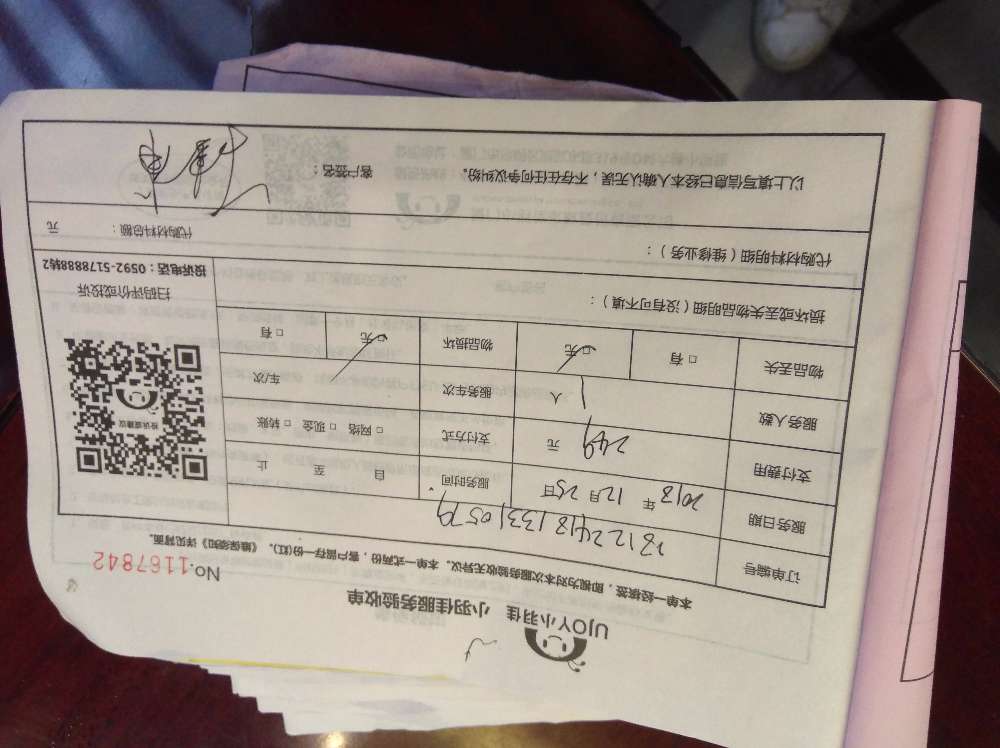 UJOY小羽佳 小羽佳服务验收单
本单一经核签，即视为对本次服务验收无异议。本单一式两份，客户留存一份(红)。《维保须知》详见背面。
No.1167842
订单编号
服务日期 2018年 12月 25日 服务时间 自 至 止
支付费用 249 元 支付方式 □ 网络 □ 现金 □ 转账
服务人数 1 人 服务车次 / 车/次
物品丢失 □ 有 □ 无 物品损坏 □ 无 □ 有
投诉或建议
扫码评价或投诉
投诉电话：0592-5178888转2
损坏或丢失物品明细（没有可不填）：
代购材料明细（维修业务）： 代购材料总额： 元
以上填写信息已经本人确认无误，不存在任何争议纠纷。 客户签名：